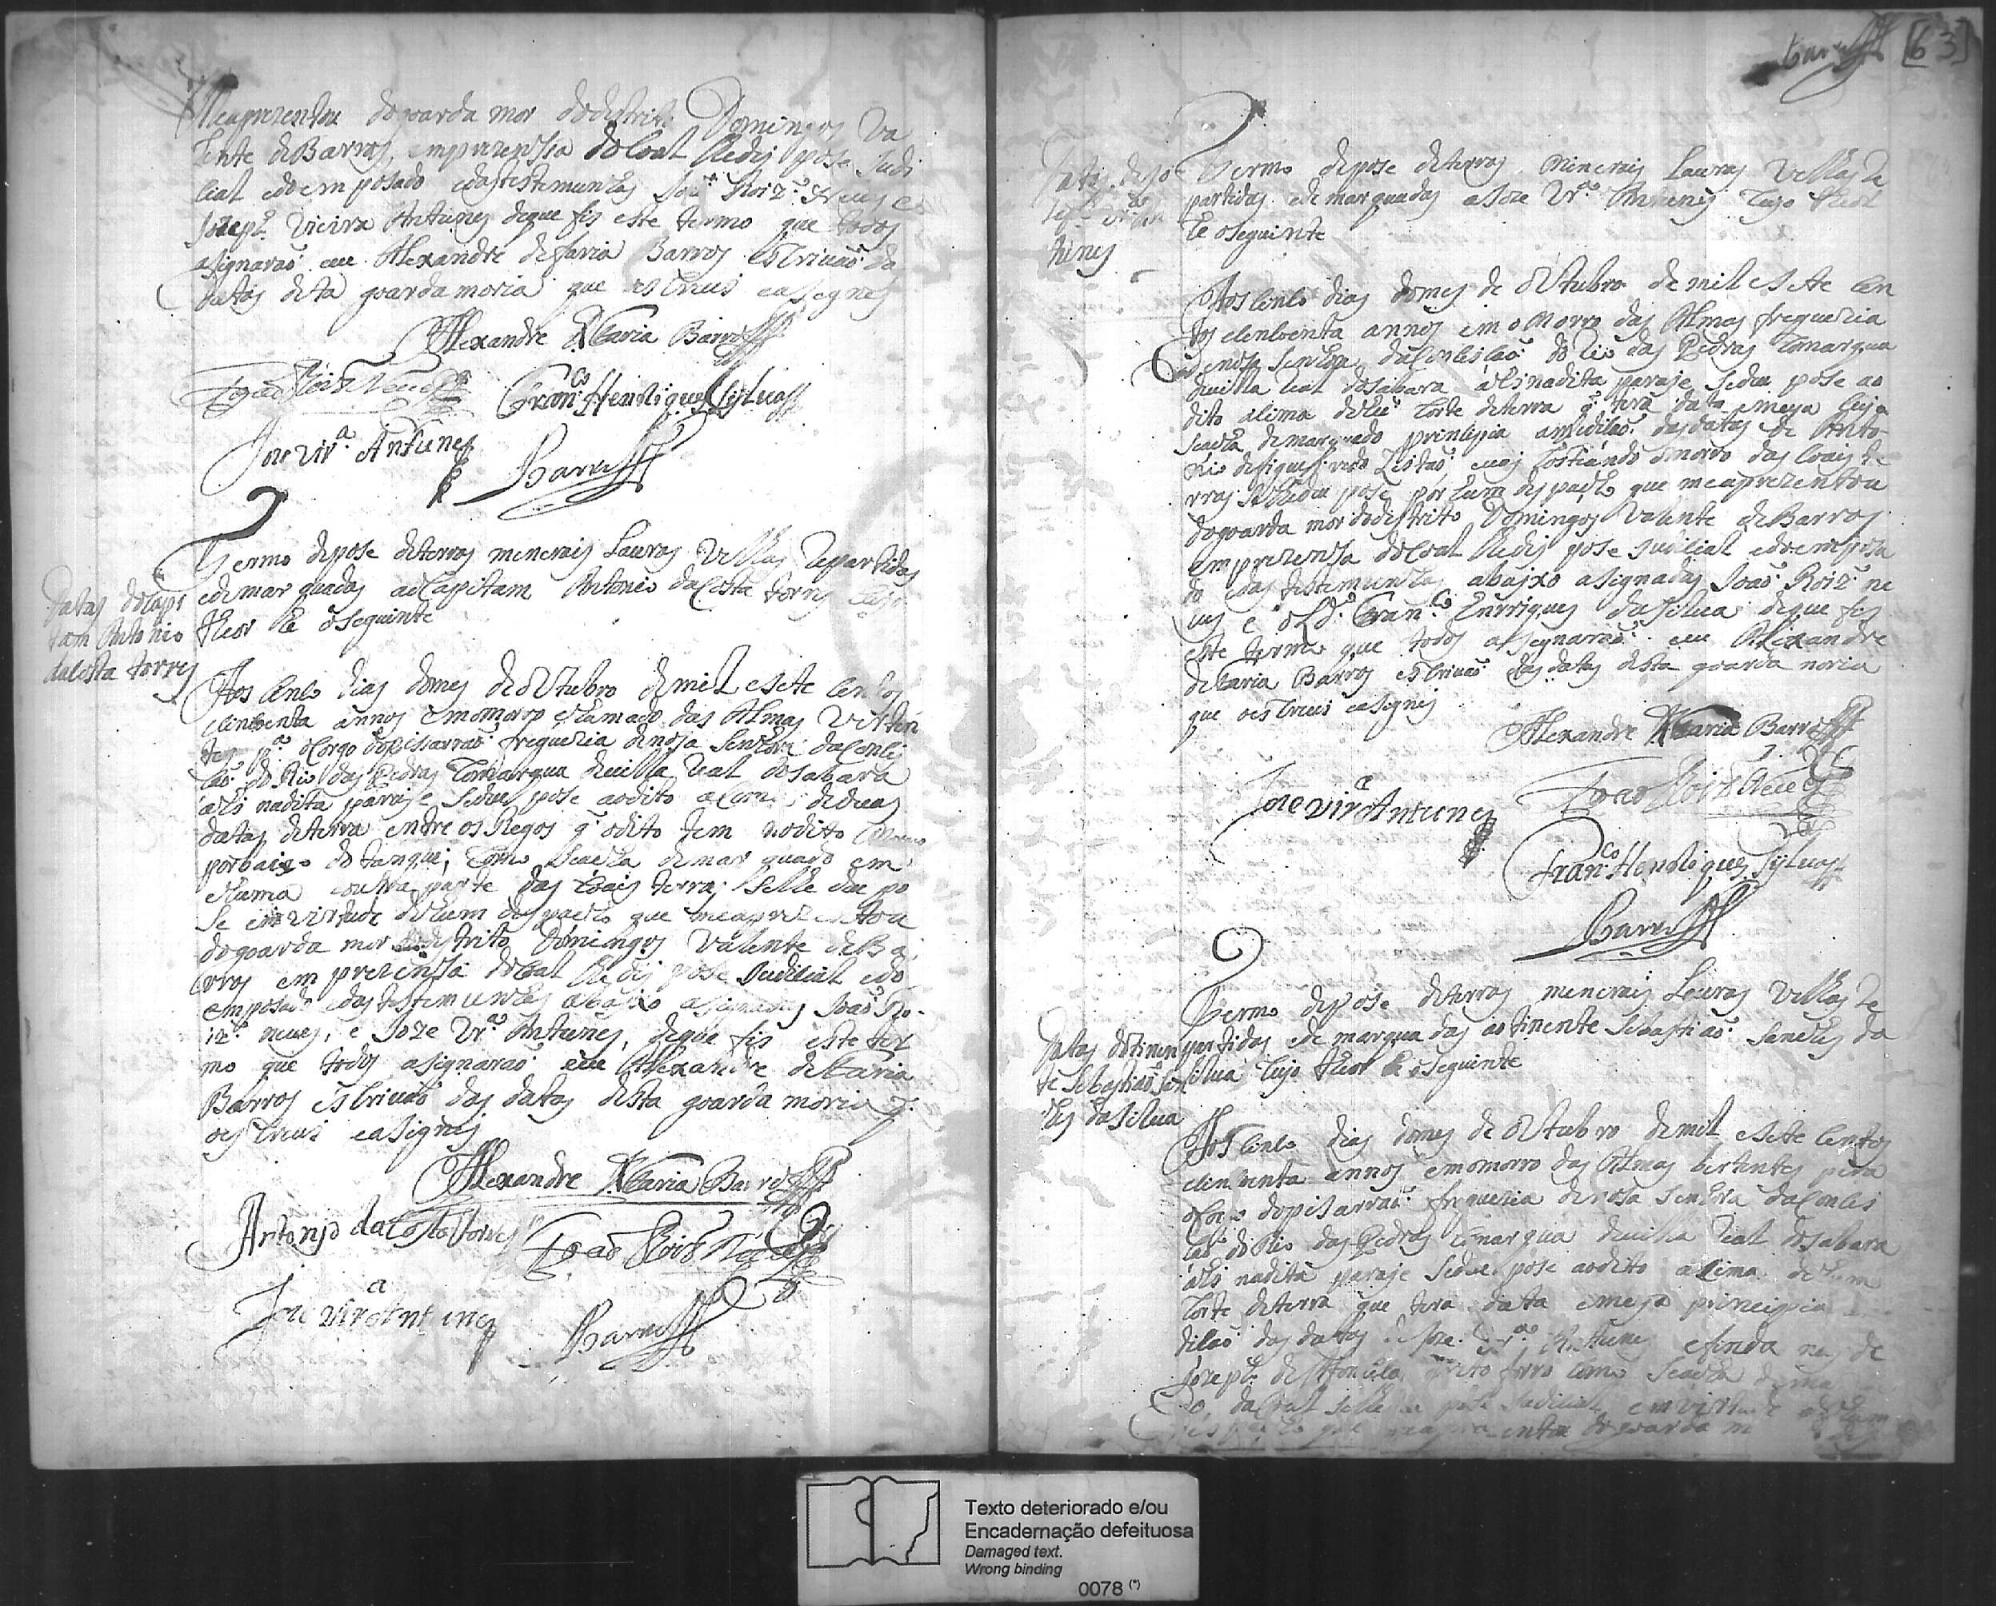 Meaprezentou do goarda mor do destrito Domingos Va
lente de Barros, em prezensa do Coal lhe dej pose Judi
cial e do emposado e das testemunhas João Roiz neves e
Jozeph Vieira Antunes de que fis este termo que todos
asignarão eu Alexandre de faria Barros escrivão das
datas desta goarda moria que escrevi e asigney
Alexandre de Faria Barros
João Roiz Neves Franco Henriques Sylva
Joze Vira Antunes
Barros
Datas do Capi
tam Antonio
da Costa torres
Termo de pose de terras menerais Lavras velhas Repartidas
e demarquadas ao Capitam Antonio da Costa torres Cujo
theor he o seguinte
Aos cinco dias do mes de outubro de mil e sete centos
e cincoenta annos em o morro chamado das Almas vertentes
pa o corgo do pisarrão freguezia de nosa Senhora da Concei
cão do Rio das Pedras Comarqua da villa Real do sabara
ahi na dita paraje se deu pose ao dito asima de duas
datas de terra entre os Regos q o dito tem no dito
por baixo do tanque; Como se acha demarquado em
e huma e outra parte das Coais terras se lhe deu po
se em virtude de hum despacho que me aprezentou
do goarda mor do destrito Domingos Valente de Ba
rros em prezensa do Coal lhe dej pose Judicial e do
emposado e das testemunhas abaixo asignadas João Ro
iz neves, e Joze Vra Antunes, de que fis este ter
mo que todos asignarão eu Alexandre de Faria
Barros escrivão das datas desta goarda moria q
o escrevi e asigney
Alexandre de Faria Barros
Antonio da Costa torres João Roiz Neves
Joze Vira Antunes
Barros
Barros [63]
Datas de Jo
seph Vra An
tunes
Termo de pose de terras Minerais Lavras velhas Re
partidas e demarquadas a Joze Vra Antunes Cujo theor
he o seguinte
Aos cinco dias do mes de outubro de mil e sete cen
tos e cincoenta annos em o Morro das Almas freguezia
de nosa Senhora da Conceicão do Rio das Pedras Comarqua
da villa Real do sabara ahi na dita paraje se deu pose ao
dito asima de hu Corte de terra q tera data e meya Cuja
se acha demarquado prinsipia das datas de Anto
nio de figueiredo e vai Costiando o morro das Coais te
rras se lhe deu pose por hum despacho que me aprezentou
do goarda mor do destrito Domingos Valente de Barros
em prezensa do Coal lhe dej pose Judicial e do emposa
do e das testemunhas abajxo asignadas João Roiz ne
ves e o Ldo Franco Enrriques da Silva de que fis
este termo que todos asignarão eu Alexandre
de Faria Barros escrivão das datas desta goarda moria
que o escrevi e asigney
Alexandre de Faria Barros
Joze Vira Antunes João Roiz Neves
Franco Henriques Sylva
Barros
Datas do tinen
te Sebastião San
ches da Silva
Termo de pose de terras menerais Lavras velhas Re
partidas e demarquadas ao tinente Sebastião Sanches da
silva Cujo theor he o seguinte
Aos cinco dias do mes de outubro de mil e sete centos
e cincoenta annos em o morro das Almas bertentes pera
o Corgo do pisarrão freguezia de nosa Senhora da Concei
cão do Rio das Pedras Comarqua da villa Real do sabara
ahi na dita paraje se deu pose ao dito asima de hum
Corte de terra que tera data e meya principia
das datas de Joze Vra Antunes e finda nas de
Jozeph preto forro como se acha
do, da Coal se lhe deu pose Judicial em virtude de hum
despacho que me aprezentou do goarda
Texto deteriorado e/ou
Encadernação defeituosa
Damaged text.
Wrong binding
0078 (*)